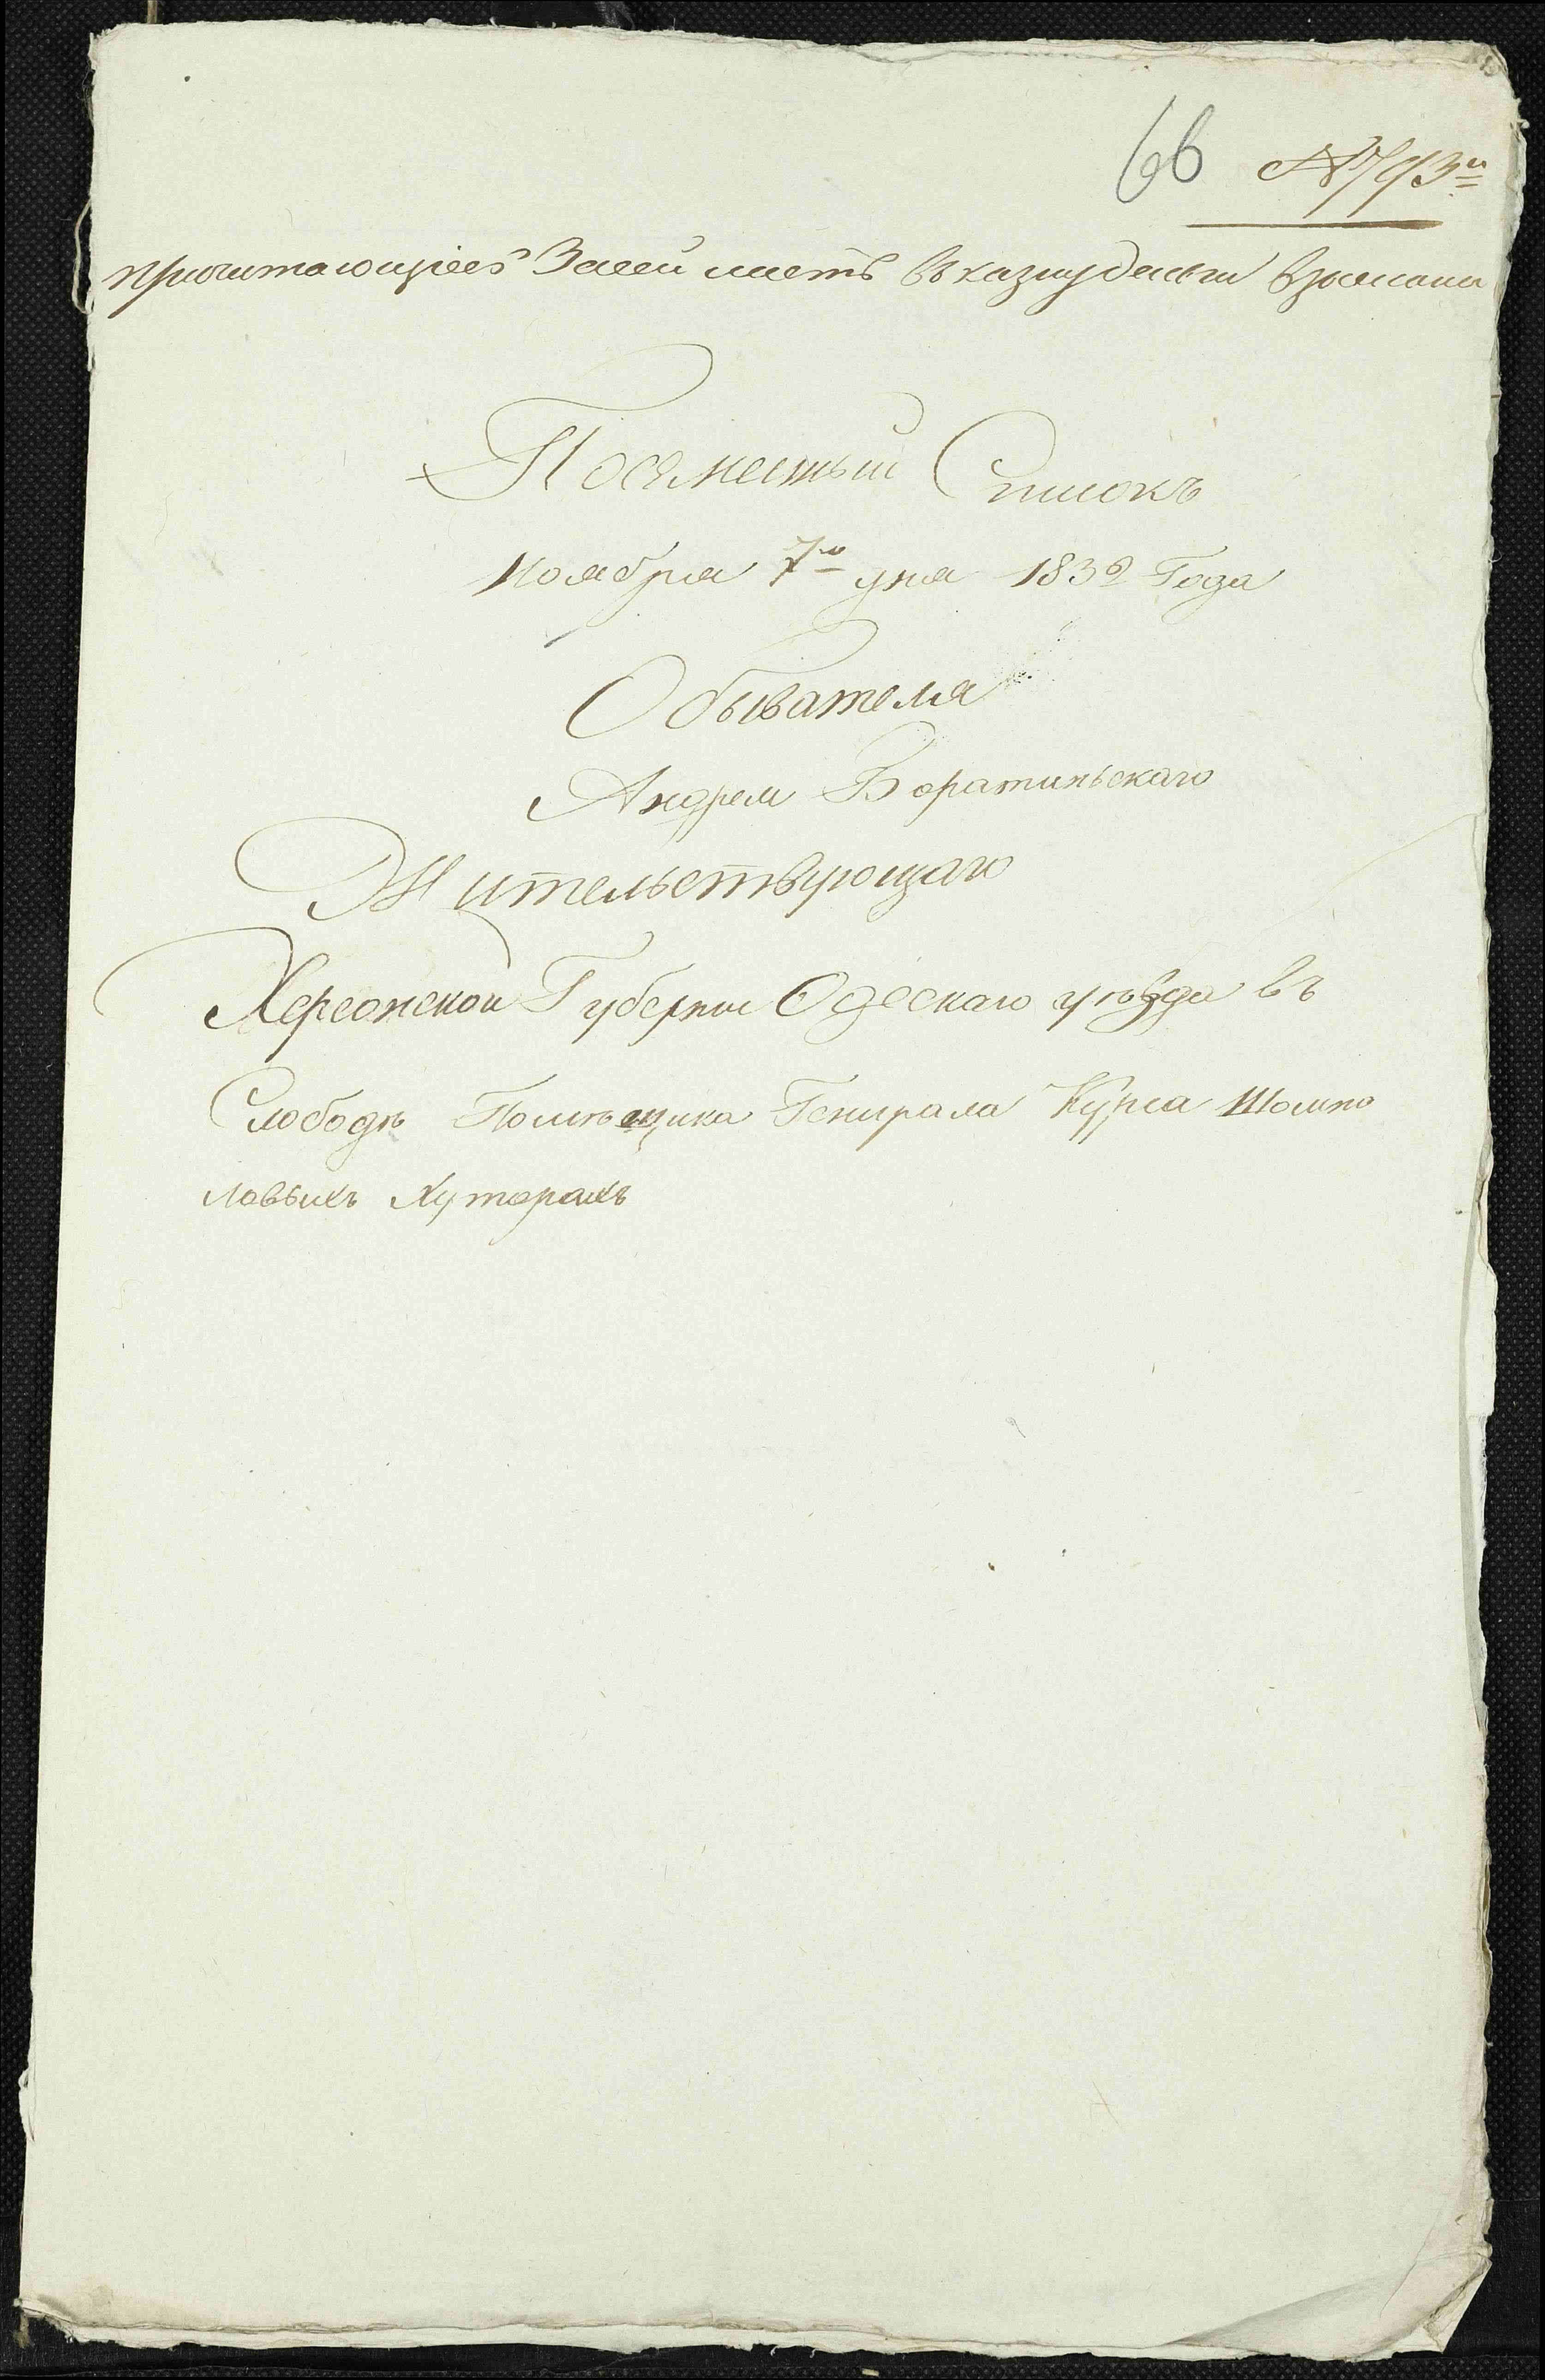 66 №793й
причитающіеся Засей листъ въ казну деньги взысканы
Посемейный Списокъ
Ноября 7го дня 1832 Года
Обывателя
Андрея Боратиньскаго
Жительствующаго
Херсонской Губерни Одескаго уѣзда въ
Слободѣ Помѣщика Генирала Куриса Шомпо
ловыхъ Хуторахъ